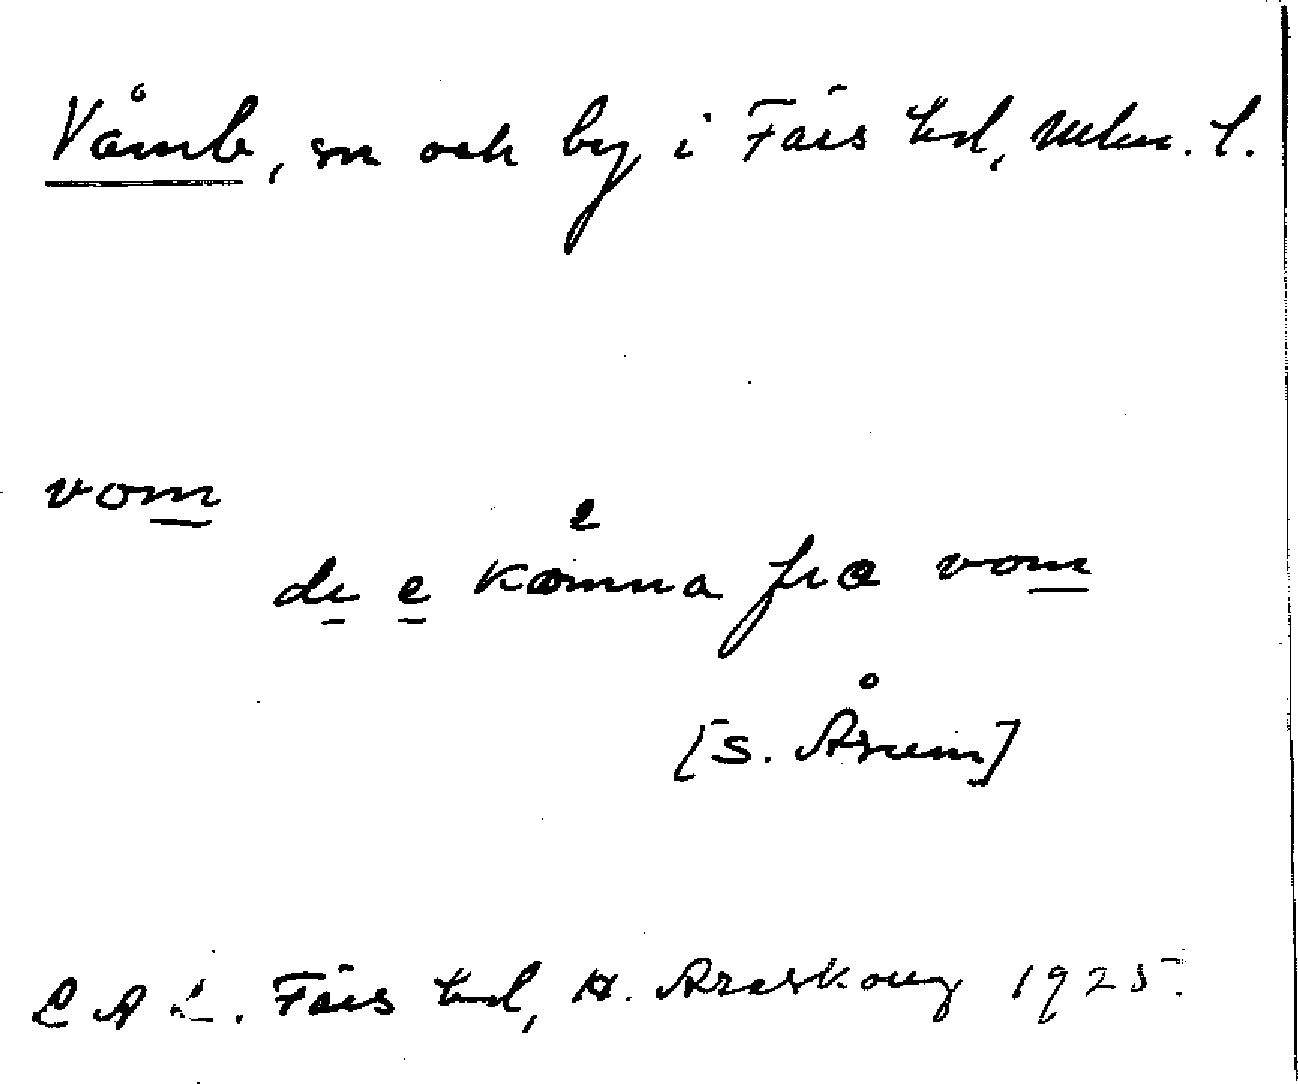 Våmb, sn och by i Fårs hd, Mlm. l.
vom
de e komna fra vom
e
[S. Åsum]
LAL. Fårs hd, H. Areskoug 1925.